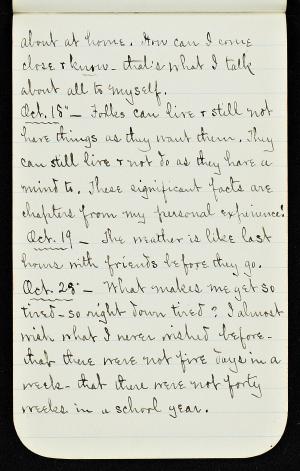 about at home. How can I come
close & know - that's what I talk
about all to myself.
Oct. 18" - Folks can live & still not
have things as they want them. They
can still live & not do as they have a
mind to. These significant facts are
chapters from my personal experience!
Oct. 19 - The weather is like last
hours with friends before they go.
Oct. 28" - What makes me get so
tired - so right down tired? I almost
wish what I never wished before -
that there were not five days in a
week - that there were not forty
weeks in a school year.